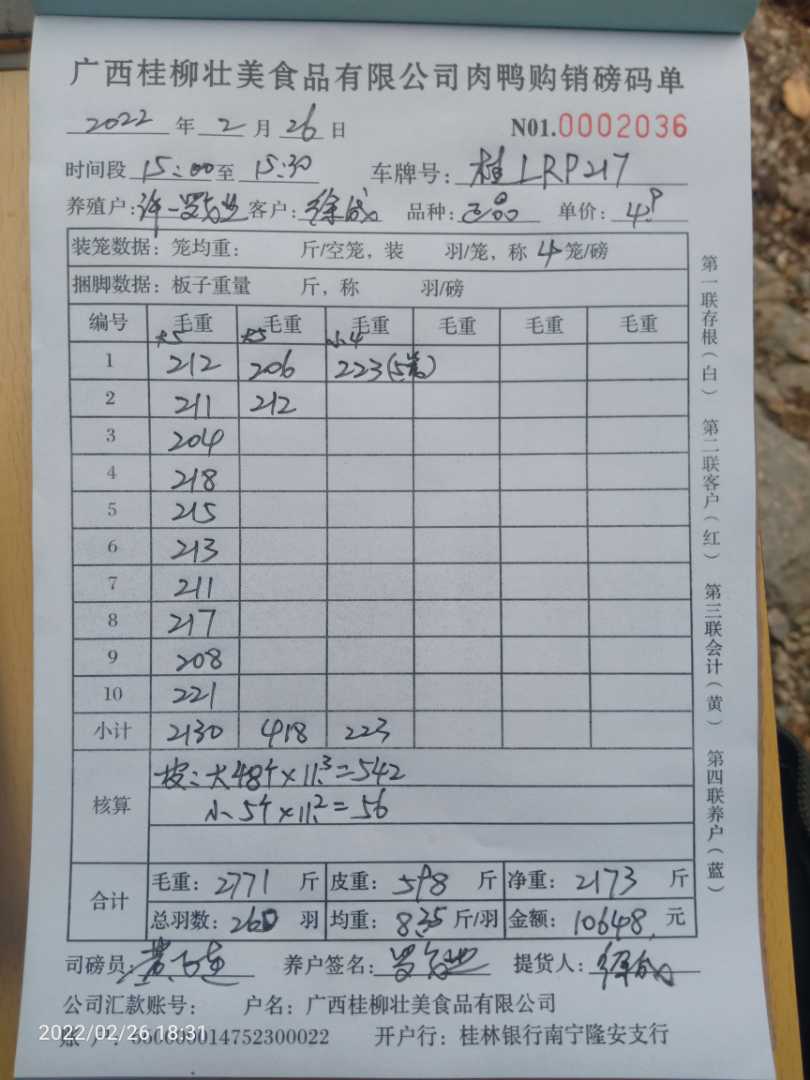 广西桂柳壮美食品有限公司肉鸭购销磅码单
2022 年 2 月 26 日 N01.0002036
时间段 15:00 至 15:30 车牌号: 桂LRP217
养殖户: 客户: 徐成 品种: 正品 单价: 4.9
装笼数据: 笼均重: 斤/空笼, 装 羽/笼, 称 4 笼/磅
捆脚数据: 板子重量 斤, 称 羽/磅
编号 毛重 毛重 毛重 毛重 毛重 毛重
大5 大5 小4
1 212 206 223(5笼)
2 211 212
3 204
4 218
5 215
6 213
7 211
8 217
9 208
10 221
小计 2130 418 223
核算 大48个×11.3=542
小5个×11.2=56
合计 毛重: 2771 斤 皮重: 598 斤 净重: 2173 斤
总羽数: 260 羽 均重: 8.35 斤/羽 金额: 10648. 元
司磅员: 养户签名: 提货人: 徐成
公司汇款账号: 户名: 广西桂柳壮美食品有限公司
账 户: 000000014752300022 开户行: 桂林银行南宁隆安支行
2022/02/26 18:31
第一联存根(白) 第二联客户(红) 第三联会计(黄) 第四联养户(蓝)